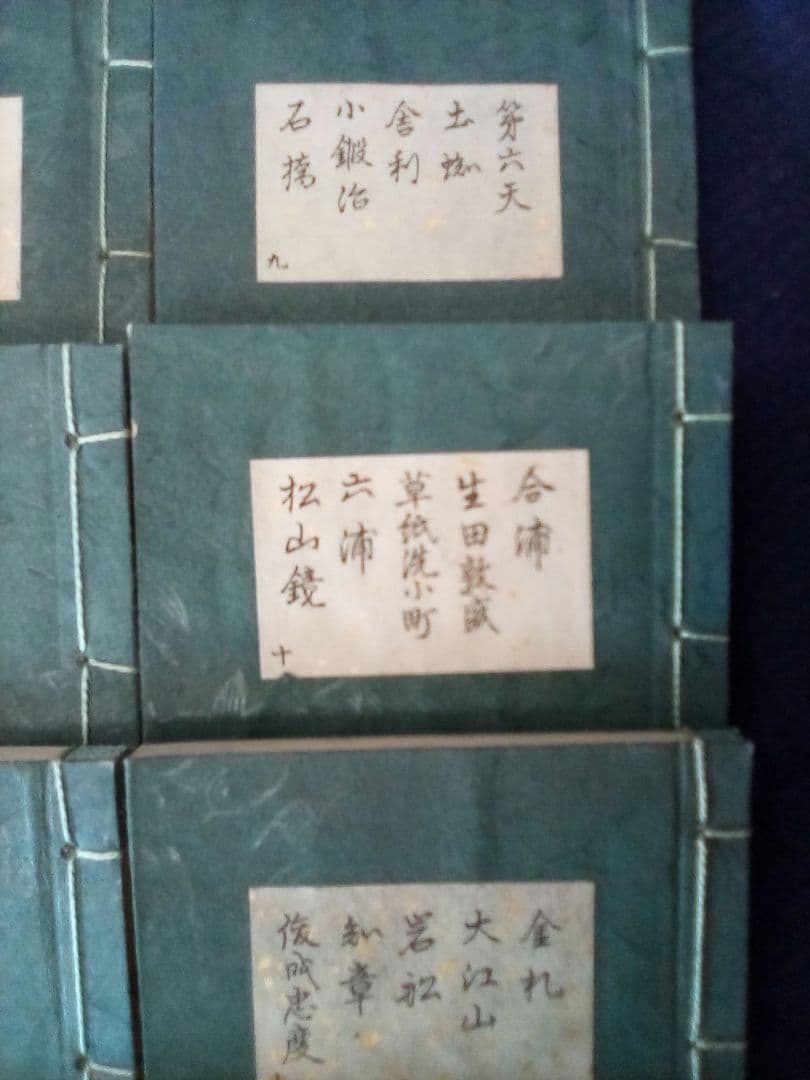 第六天
土蜘
舎利
小鍛冶
石橋
九
合浦
生田敦盛
草紙洗小町
六浦
松山鏡
十
金札
大江山
岩船
知章
俊成忠度